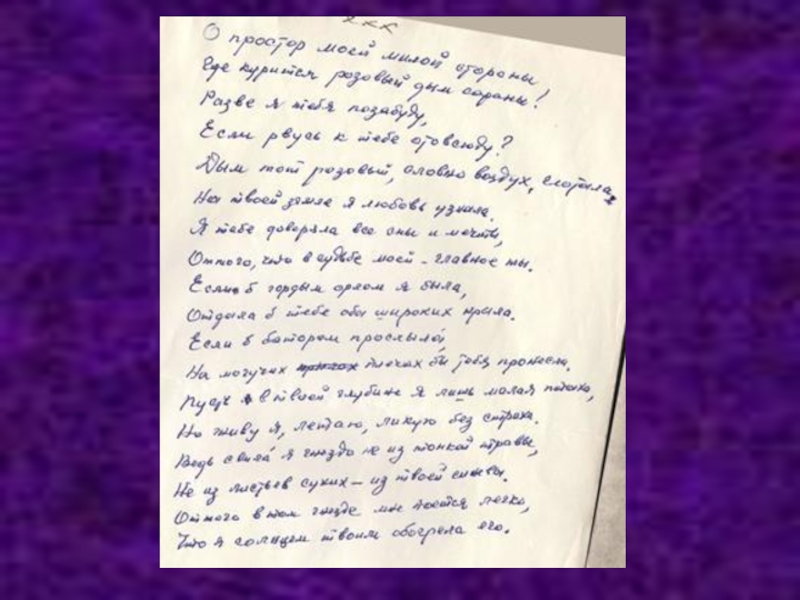 ххх
О простор моей милой стороны
Где курится розовый дым сараны!
Разве я тебя позабуду,
Если рвусь к тебе отовсюду?
Дым тот розовый, словно воздух, глотала,
На твоей земле я любовь узнала.
Я тебе доверяла все сны и мечты,
Оттого, что в судьбе моей - главное ты.
Если б гордым орлом я была,
Отдала б тебе оба широких крыла.
Если б батором прослыла,
На могучих плечах бы тебя пронесла.
Пусть в твоей глубине я лишь малая птаха,
Но живу я, летаю, ликую без страха.
Ведь свила я гнездо не из тонкой травы,
Не из листьев сухих — из твоей синевы.
Оттого в том гнезде мне поется легко,
Что я солнцем твоим обогрела его.